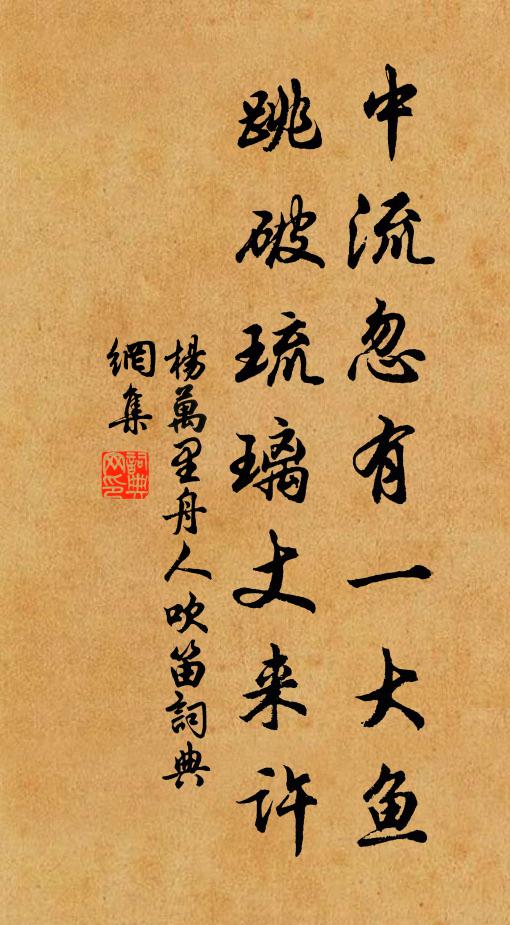 中流忽有一大鱼
跳破琉璃丈来许
楊萬里舟人吹笛詞典
網集
詞典網印